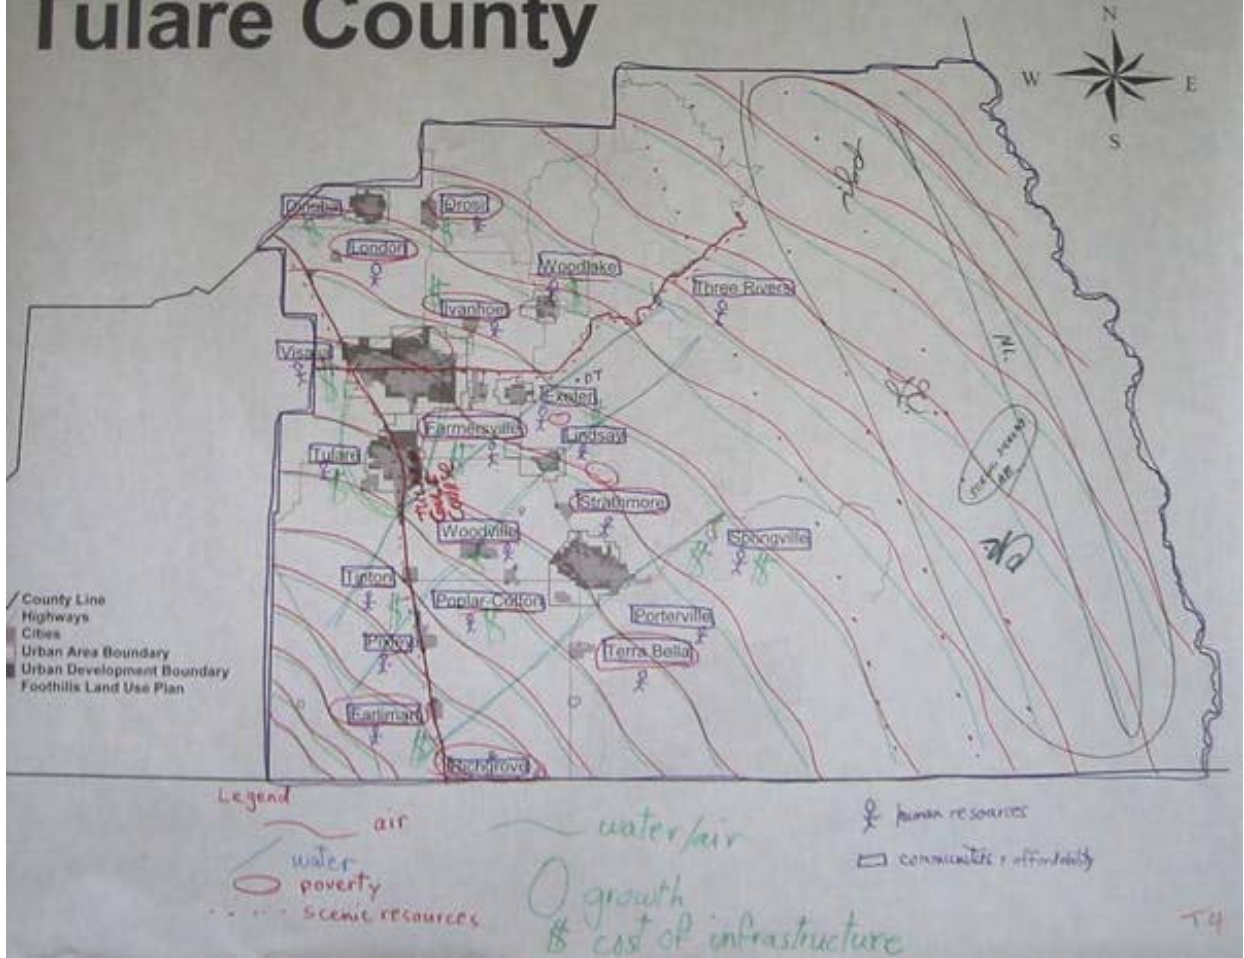 Tulare County
N
W
E
S
Dinuba
Orosi
London
Woodlake
Three Rivers
Ivanhoe
Visalia
Exeter
Farmersville
Lindsay
Tulare
Strathmore
Woodville
Springville
Tipton
Poplar-Cotton
Porterville
Pixley
Terra Bella
Earlimart
Richgrove
County Line
Highways
Cities
Urban Area Boundary
Urban Development Boundary
Foothills Land Use Plan
Legend
air
water
poverty
scenic resources
water/air
growth
$ cost of infrastructure
human resources
communities + affordability
T4